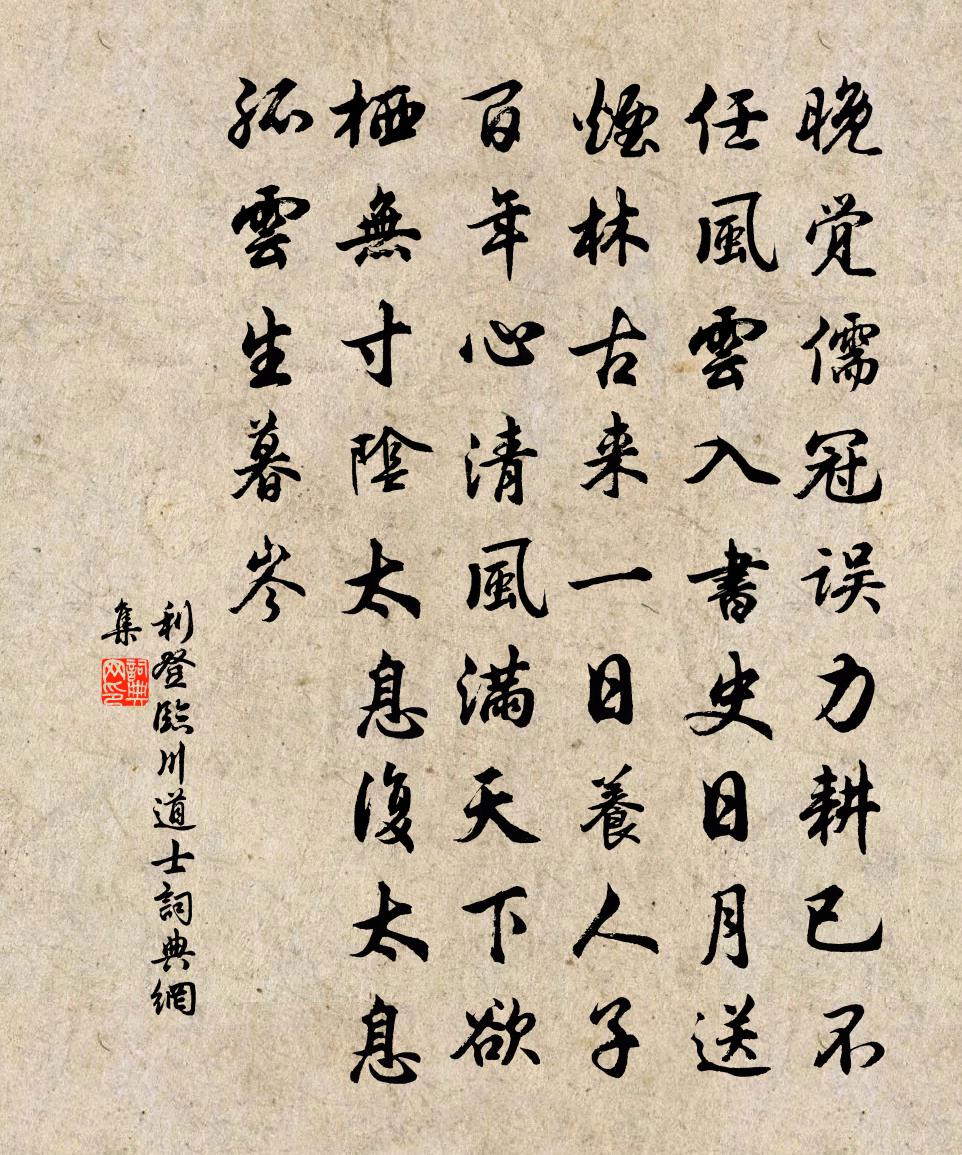 晚觉儒冠误力耕已不
任風雲入書史日月送
煙林古来一日養人子
百年心清風满天下欲
栖無寸陰太息復太息
孤雲生暮岑
利登臨川道士詞典網
集
詞典
网印